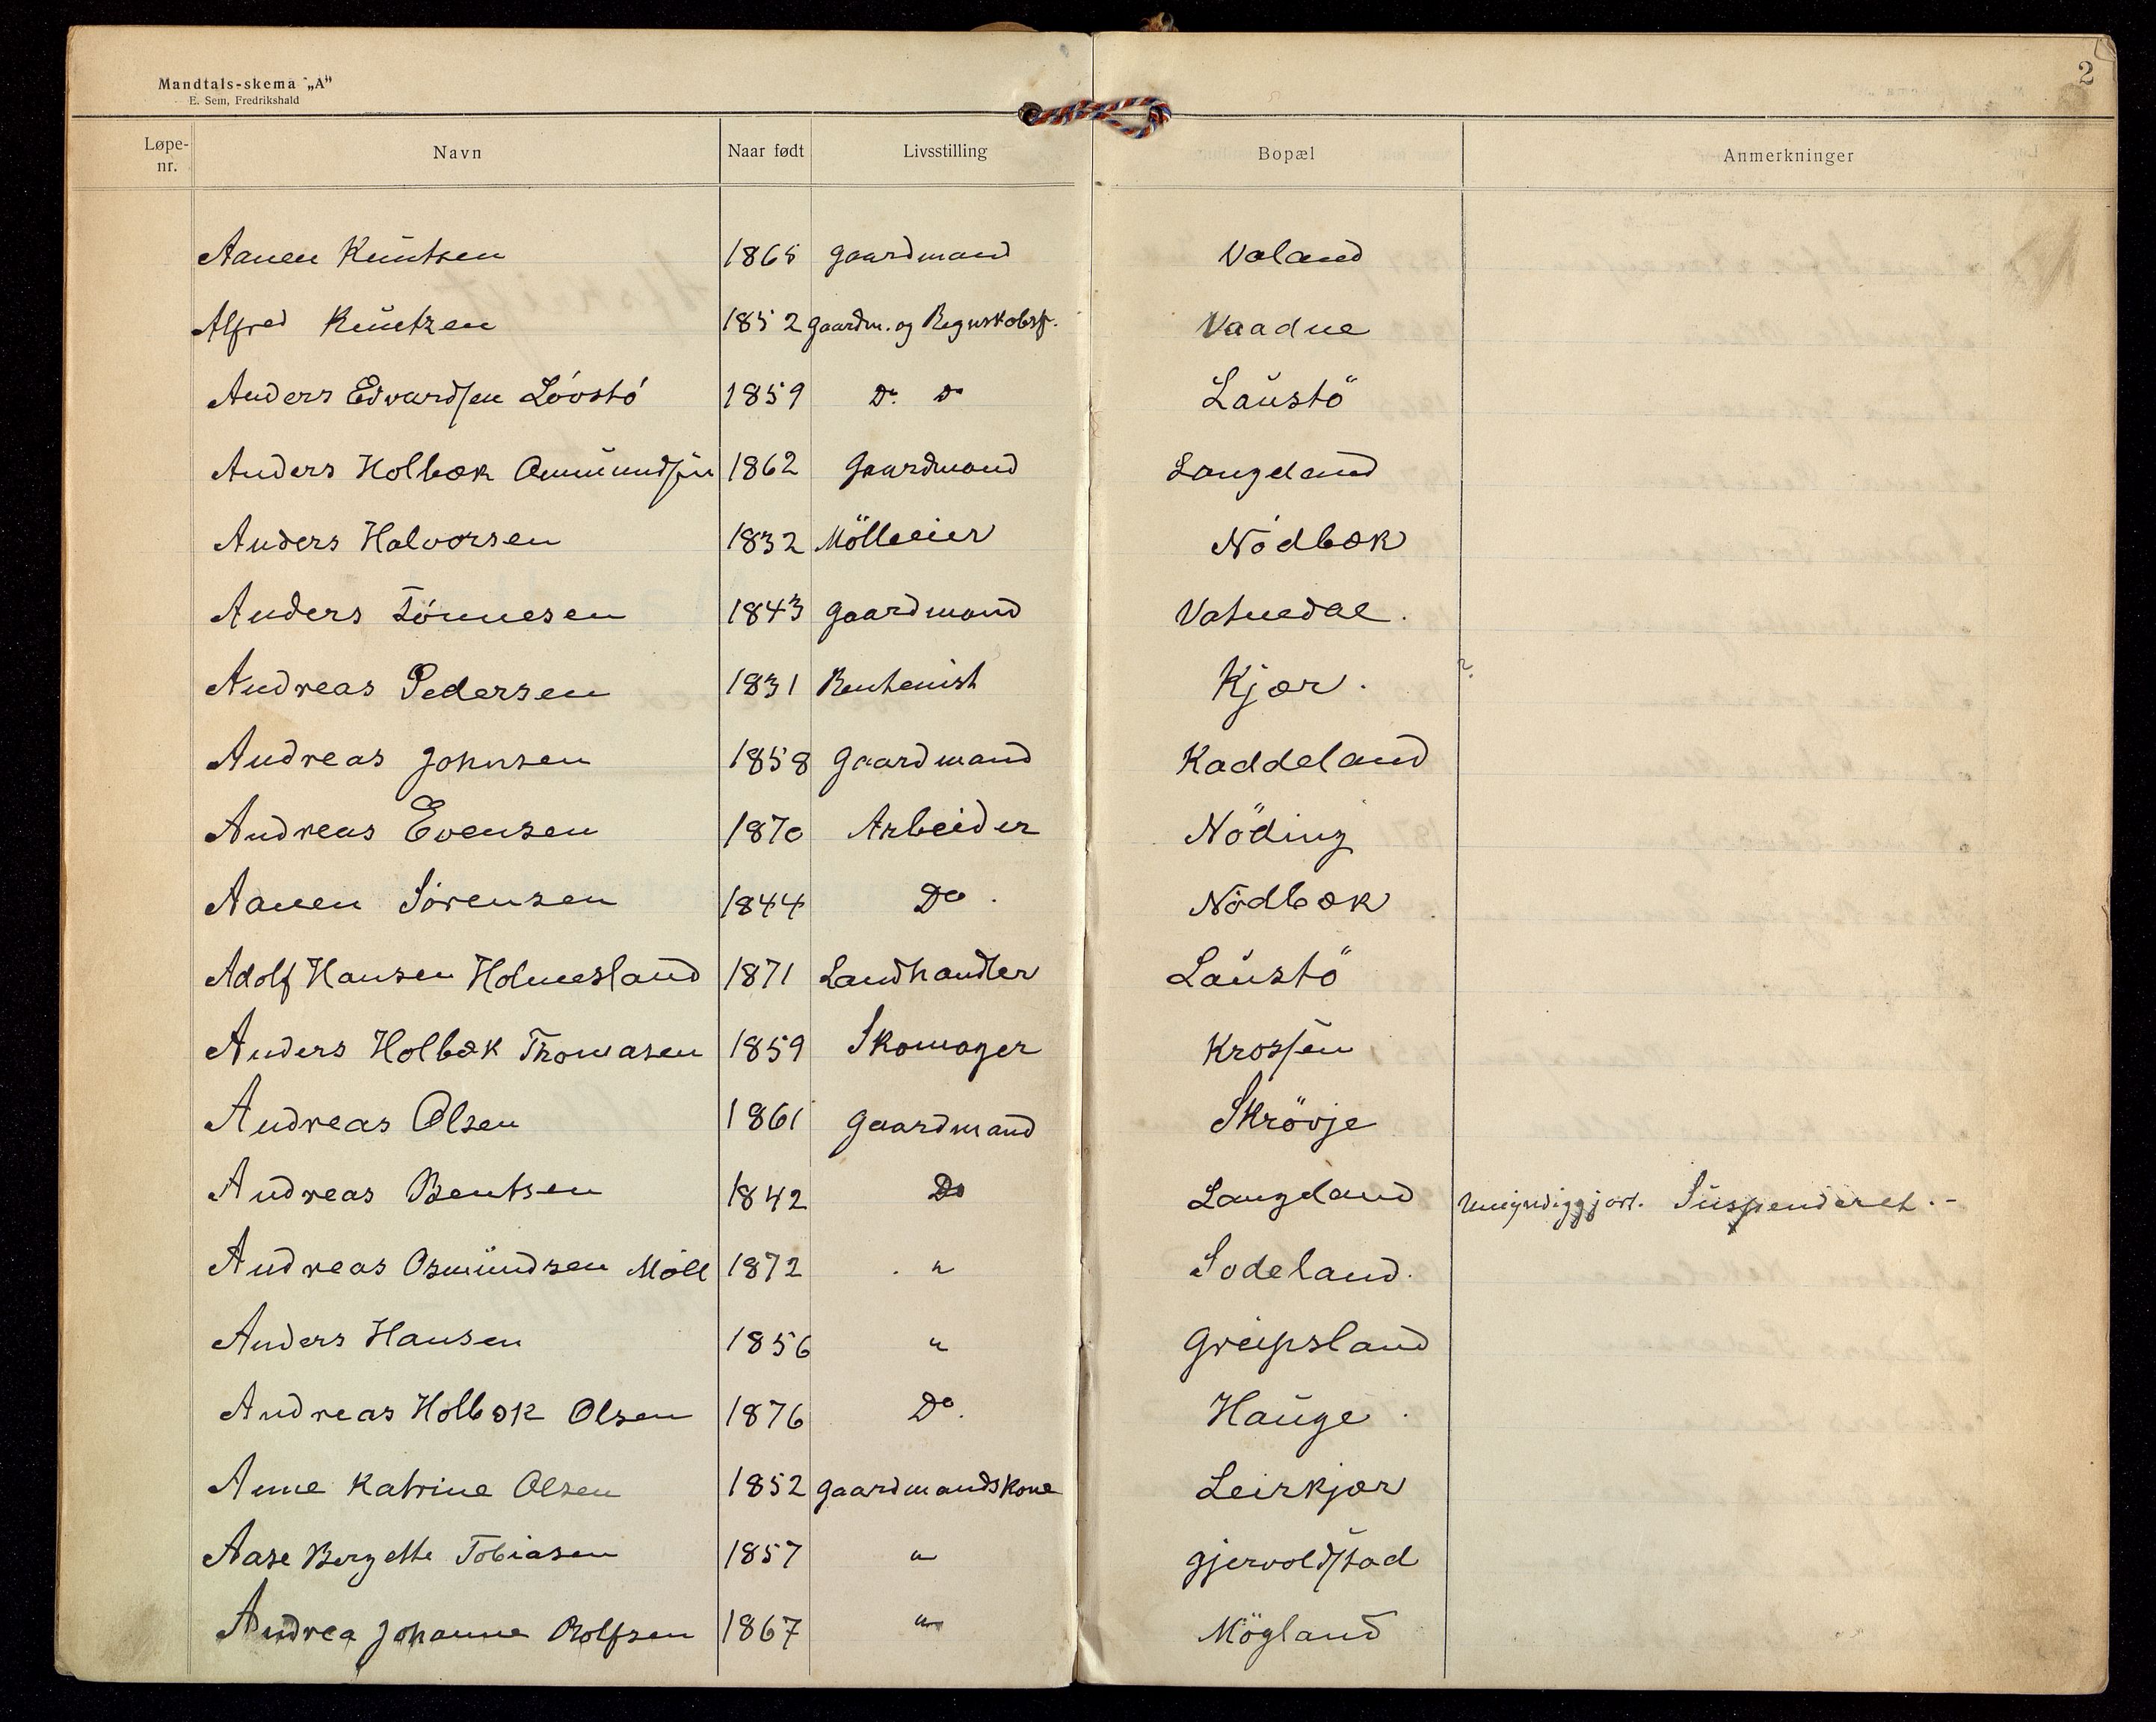 Mandtals-skema „A"
E. Sem, Fredrikshald
2
Løpe-nr. Navn Naar født Livsstilling Bopæl Anmerkninger
Aanen Knutsen 1865 gaardmand Valand
Alfred Knutzen 1852 gaardm. og Regnskabsf. Vaadne
Anders Edvardsen Lövstö 1859 Do Do Laustö
Anders Holbæk Ommundsen 1862 Gaardmand Langeland
Anders Halvorsen 1832 Mölleeier Nödbæk
Anders Tönnesen 1843 gaardmand Vatnedal.
Andreas Pedersen 1831 Rentenist Kjær. ?
Andreas Johnsen 1858 gaardmand Kaddeland
Andreas Evensen 1870 Arbeider Nöding
Aanen Sörensen 1844 Do. Nödbæk
Adolf Hansen Holmesland 1871 Landhandler Laustö
Anders Holbæk Thomasen 1859 Skomager Krossen
Andreas Olsen 1861 gaardmand Skrövje
Andreas Bentsen 1842 Do Langeland Umyndiggjort. Suspenderet.-
Andreas Osmundsen Möll 1872 " Sodeland.
Anders Hansen 1856 " Greipsland
Andreas Holbæk Olsen 1876 Do. Hauge.
Anne Katrine Olsen 1852 gaardmandskone Leirkjær
Aase Bergette Tobiasen 1857 " gjervoldstad
Andrea Johanne Rolfsen 1867 " Mögland